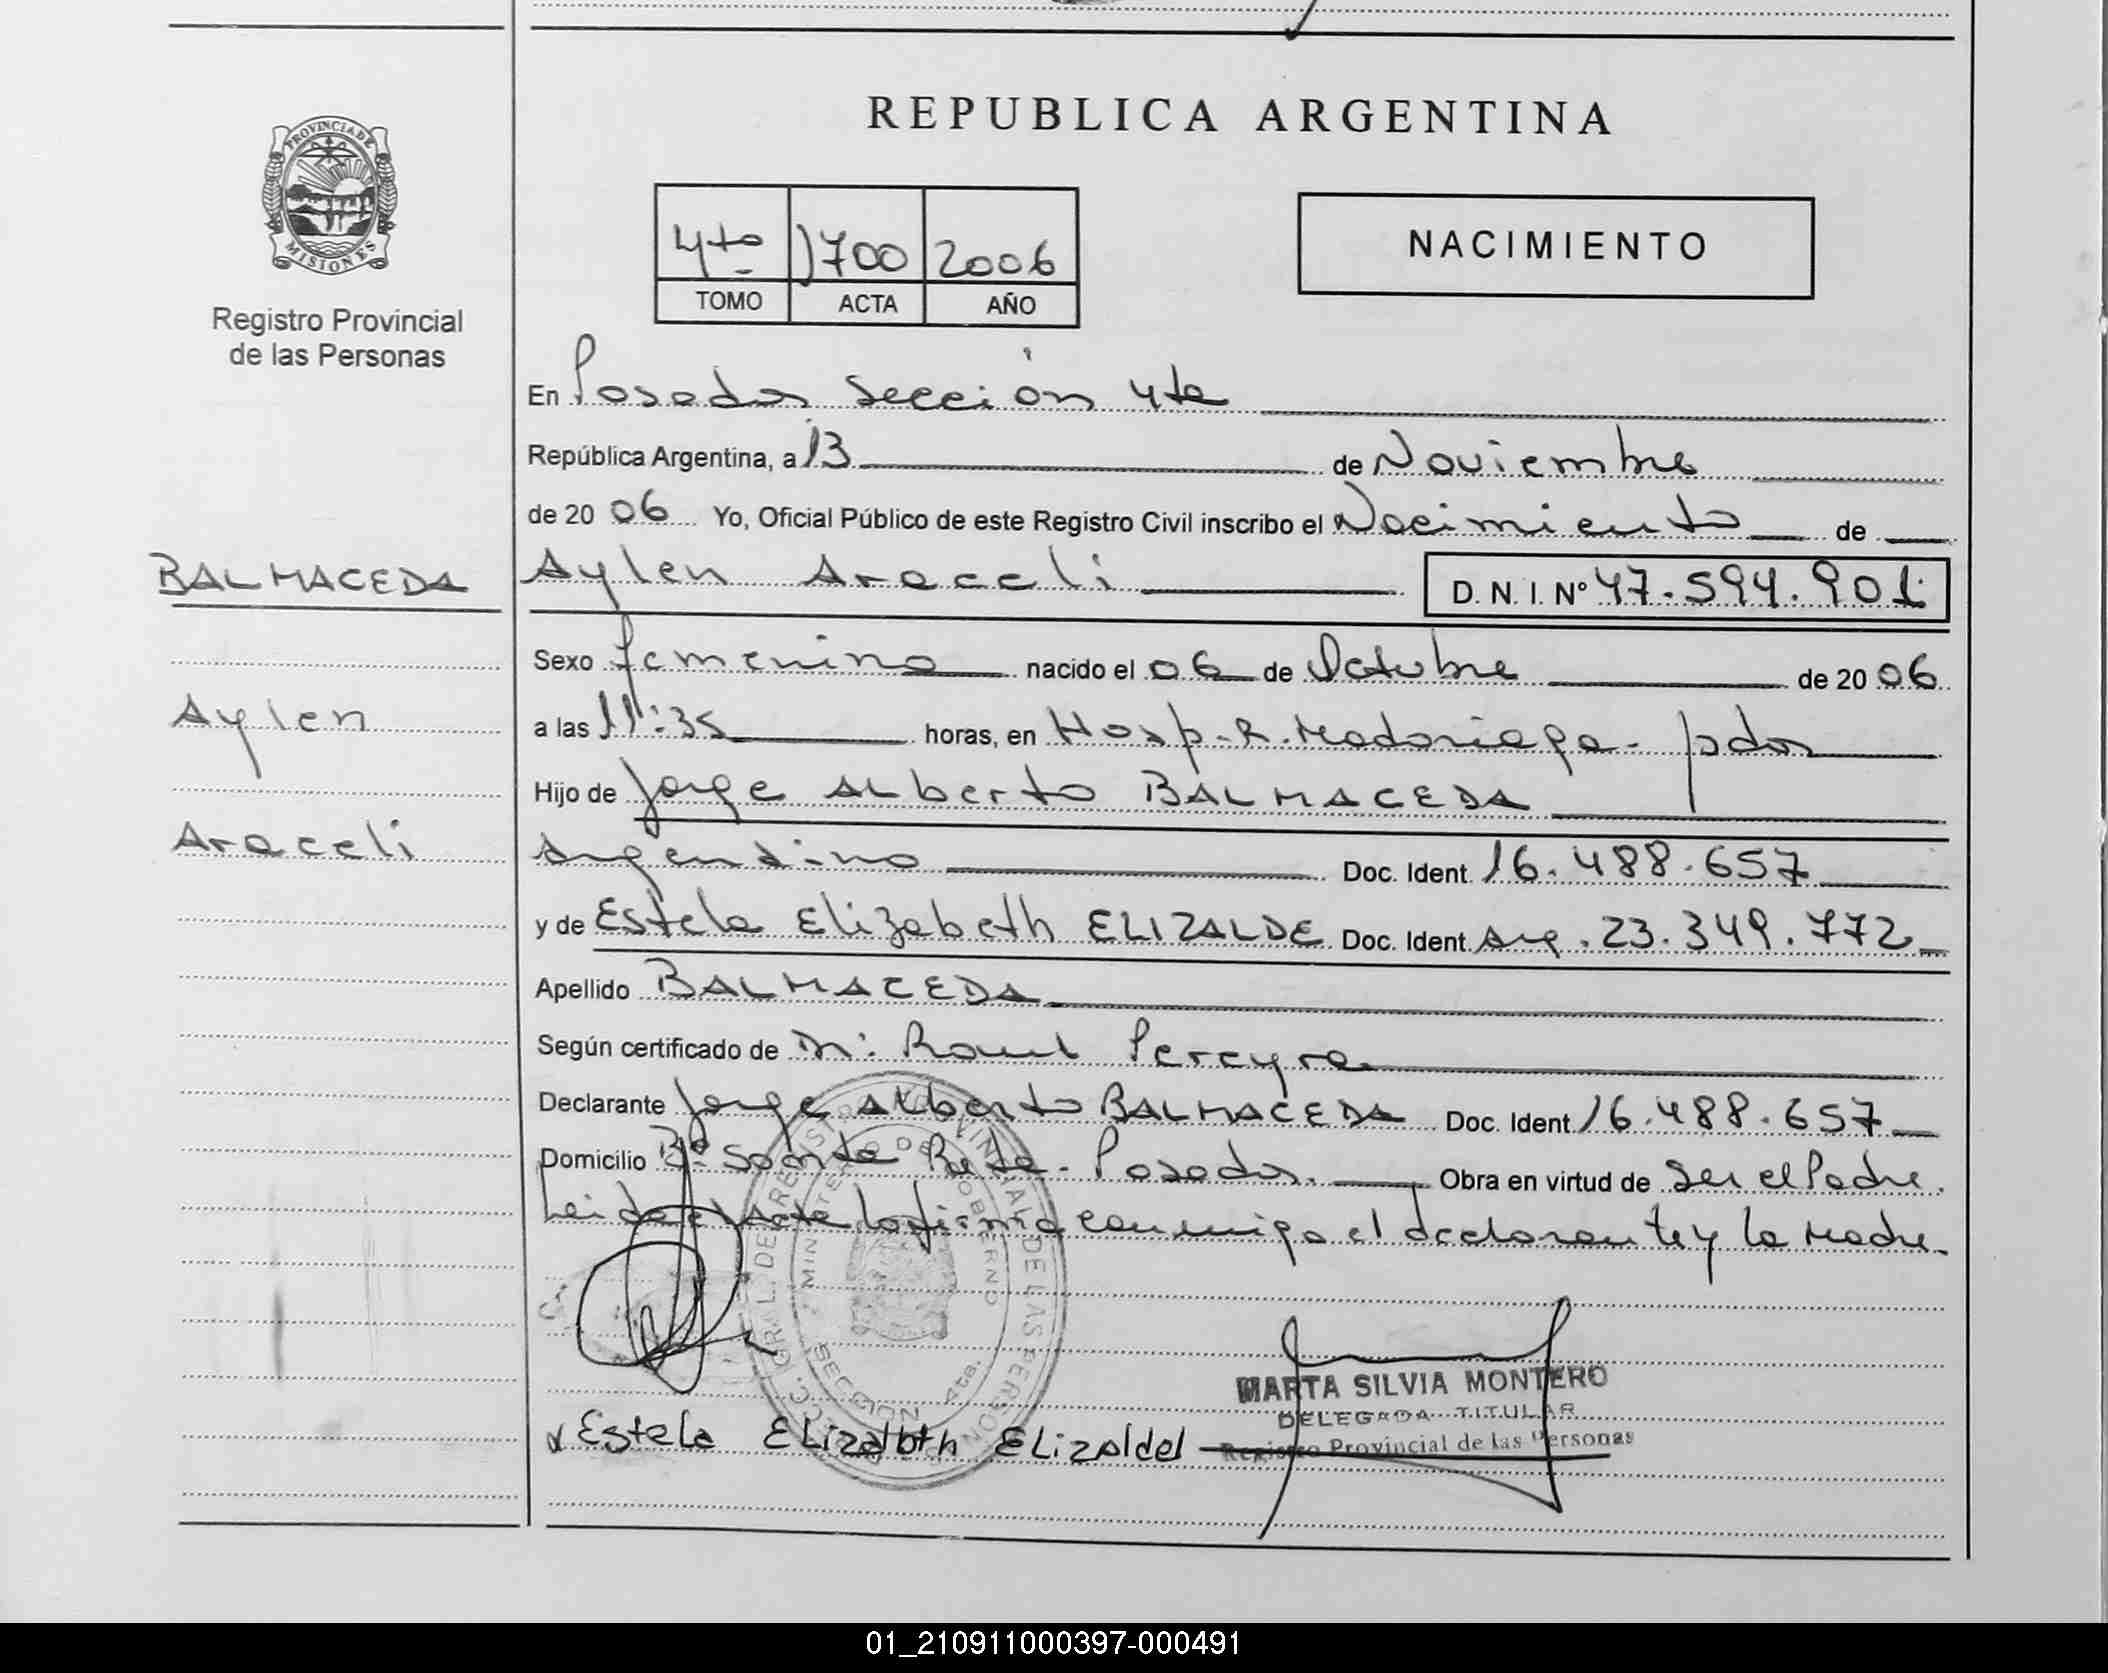 REPUBLICA ARGENTINA
PROVINCIA DE
MISIONES
Registro Provincial
de las Personas
4to 1700 2006
TOMO ACTA AÑO
NACIMIENTO
En Posadas Sección 4ta
República Argentina, a 13 de Noviembre
de 20 06 Yo, Oficial Público de este Registro Civil inscribo el Nacimiento de
BALMACEDA
Aylen
Araceli
Aylen Araceli D.N.I. Nº 47.594.901
Sexo femenino nacido el 06 de Octubre de 20 06
a las 11:35 horas, en Hosp. R. Madariaga - pdas
Hijo de Jorge Alberto BALMACEDA
Argentino Doc. Ident. 16.488.657
y de Estela Elizabeth ELIZALDE Doc. Ident. Arg. 23.349.772
Apellido BALMACEDA
Según certificado de Dr. Raul Pereyra
Declarante Jorge Alberto BALMACEDA Doc. Ident. 16.488.657
Domicilio Bº Santa Rita - Posadas. Obra en virtud de Ser el Padre.
Leida el Acta la firma conmigo el declarante y la Madre.
REGISTRO PROVINCIAL DE LAS PERSONAS
MINISTERIO DE GOBIERNO
SECCION 4ta.
MARTA SILVIA MONTERO
DELEGADA TITULAR
Registro Provincial de las Personas
Estela Elizabeth Elizaldel
01_210911000397-000491